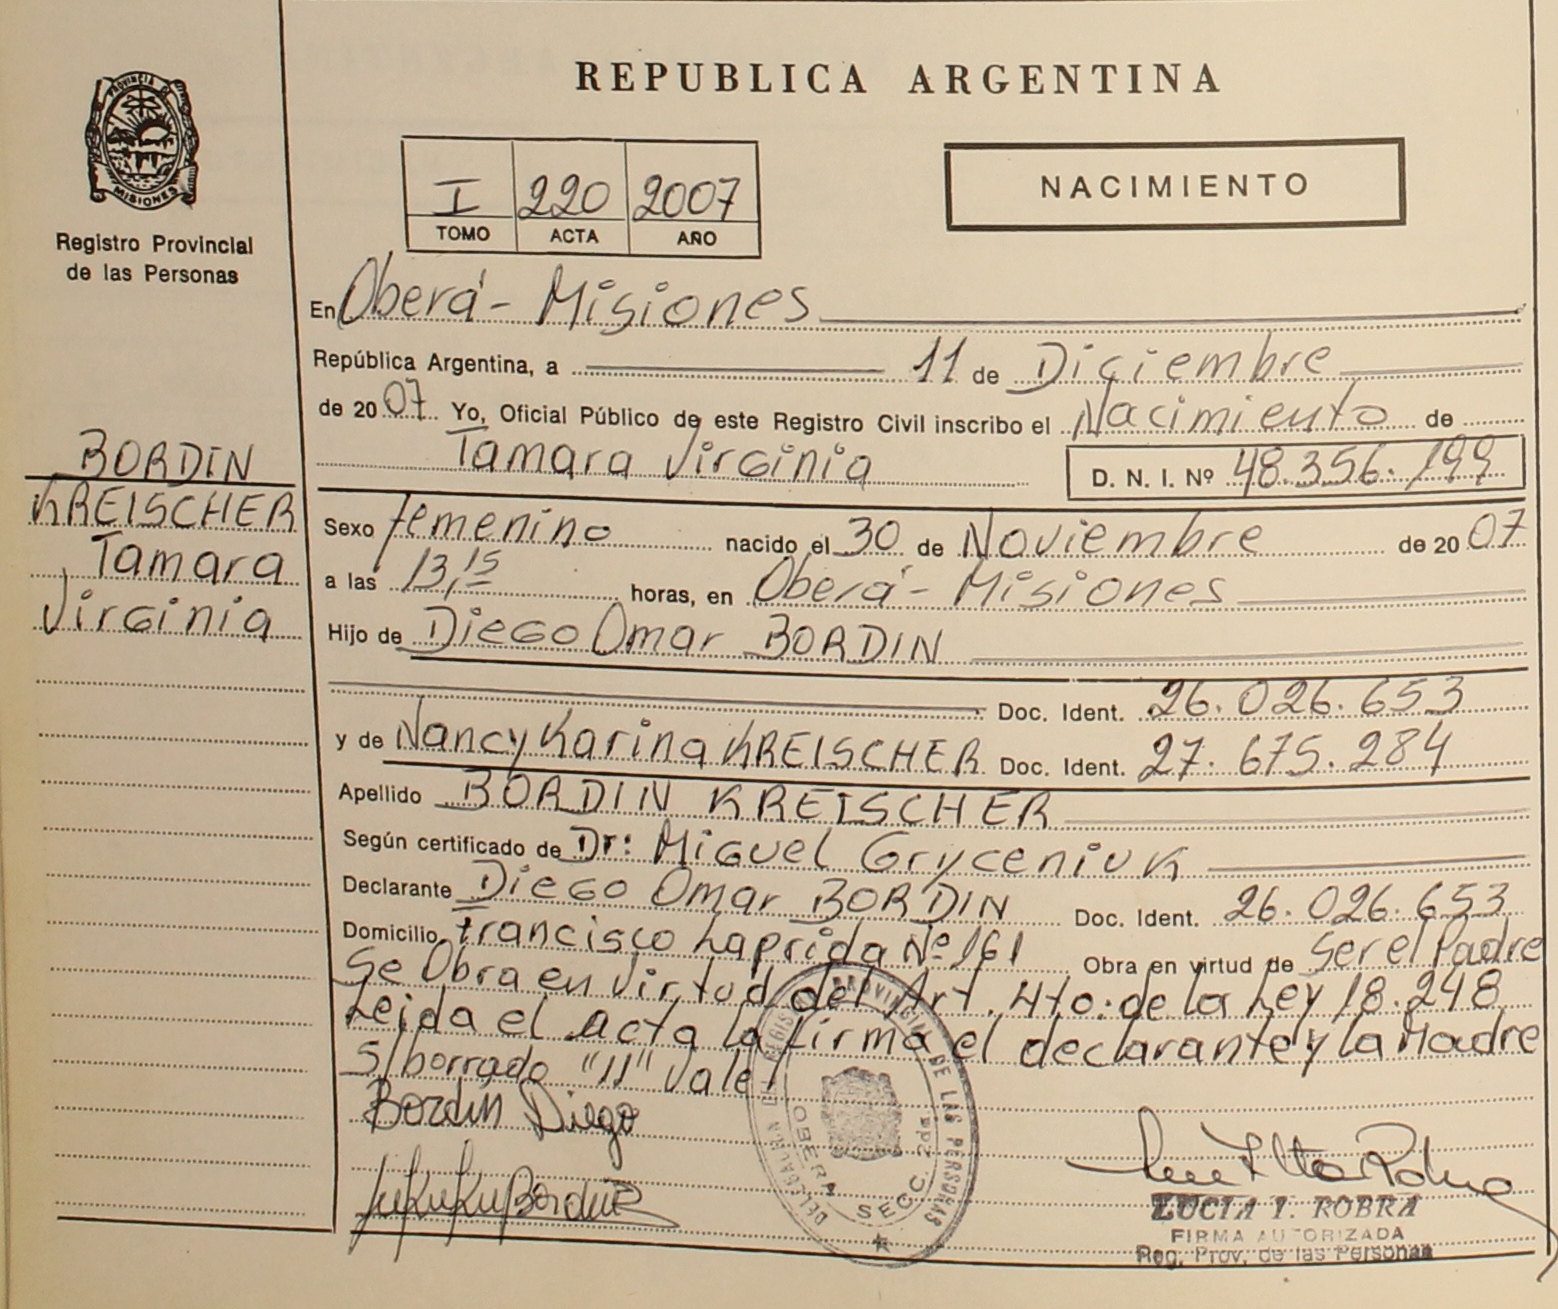 PROVINCIA DE
MISIONES
Registro Provincial
de las Personas
BORDIN
KREISCHER
Tamara
Virginia
REPUBLICA ARGENTINA
I 220 2007
TOMO ACTA AÑO
NACIMIENTO
En Oberá - Misiones
República Argentina, a 11 de Diciembre
de 2007 Yo, Oficial Público de este Registro Civil inscribo el Nacimiento de
Tamara Virginia D. N. I. Nº 48.356.199
Sexo femenino nacido el 30 de Noviembre de 2007
a las 13,15 horas, en Oberá - Misiones
Hijo de Diego Omar BORDIN
Doc. Ident. 26.026.653
y de Nancy Karina KREISCHER Doc. Ident. 27.675.284
Apellido BORDIN KREISCHER
Según certificado de Dr: Miguel Gryceniuk
Declarante Diego Omar BORDIN Doc. Ident. 26.026.653
Domicilio Francisco Laprida Nº 161 Obra en virtud de Ser el Padre
Se Obra en virtud del Art. 4to. de la Ley 18.248
Leida el acta la firma el declarante y la Madre
S/borrado "11" Vale
Bordin Diego
REGISTRO PROVINCIAL DE LAS PERSONAS
OBERA SECC. 2da
LUCIA I. ROBRA
FIRMA AUTORIZADA
Reg. Prov. de las Personas